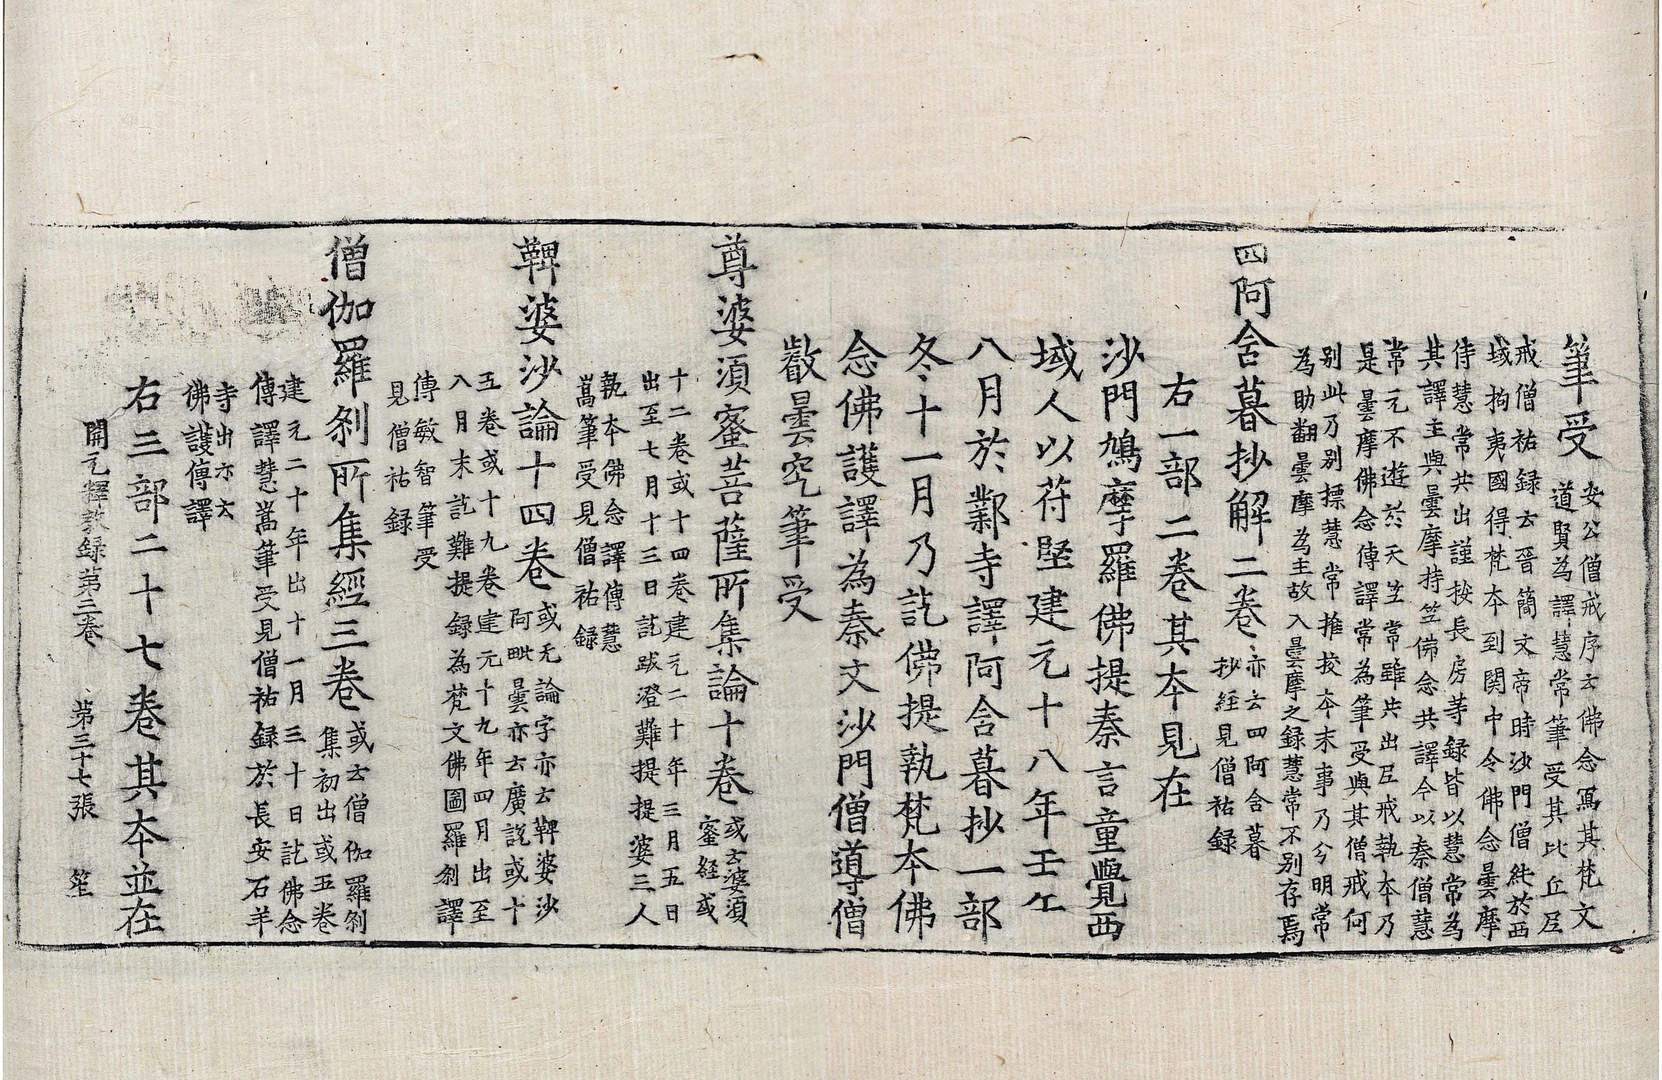 筆受 安公僧戒序云佛念寫其梵文
道賢為譯慧常筆受其比丘尼
戒僧祐録云晉簡文帝時沙門僧純於西
域拘夷國得梵夲到関中令佛念曇摩
侍慧常共出謹按長房䓁録皆以慧常為
其譯主與曇摩持竺佛念共譯今以秦僧慧
常元不遊於天竺常雖共出尼戒執夲乃
是曇摩佛念傳譯常為筆受與其僧戒何
别此乃别摽慧常推挍夲末事乃兮明常
為助翻曇摩為主故入曇摩之録慧常不别存焉
四阿含暮抄解二卷 亦云四阿含暮
抄經見僧祐録
右一部二卷其夲見在
沙門鳩摩羅佛提秦言童覺西
域人以苻堅建元十八年壬午
八月於鄴寺譯阿含暮抄一部
冬十一月乃訖佛提執梵夲佛
念佛護譯為秦文沙門僧導僧
叡曇究筆受
尊婆湏蜜菩薩所集論十卷 或云婆湏
蜜經或
十二卷或十四卷建元二十年三月五日
出至七月十三日訖跋澄難提提婆三人
執夲佛念譯傳慧
嵩筆受見僧祐録
鞞婆沙論十四卷 或无論字亦云鞞婆沙
阿毗曇亦云廣説或十
五卷或十九卷建元十九年四月出至
八月末訖難提録為梵文佛圖羅刹譯
傳敏智筆受
見僧祐録
僧伽羅刹所集經三卷 或云僧伽羅刹
集初出或五卷
建元二十年出十一月三十日訖佛念
傳譯慧嵩筆受見僧祐録於長安石羊
寺出亦云
佛護傳譯
右三部二十七卷其夲並在
開元釋教録第三卷 第三十七張 笙